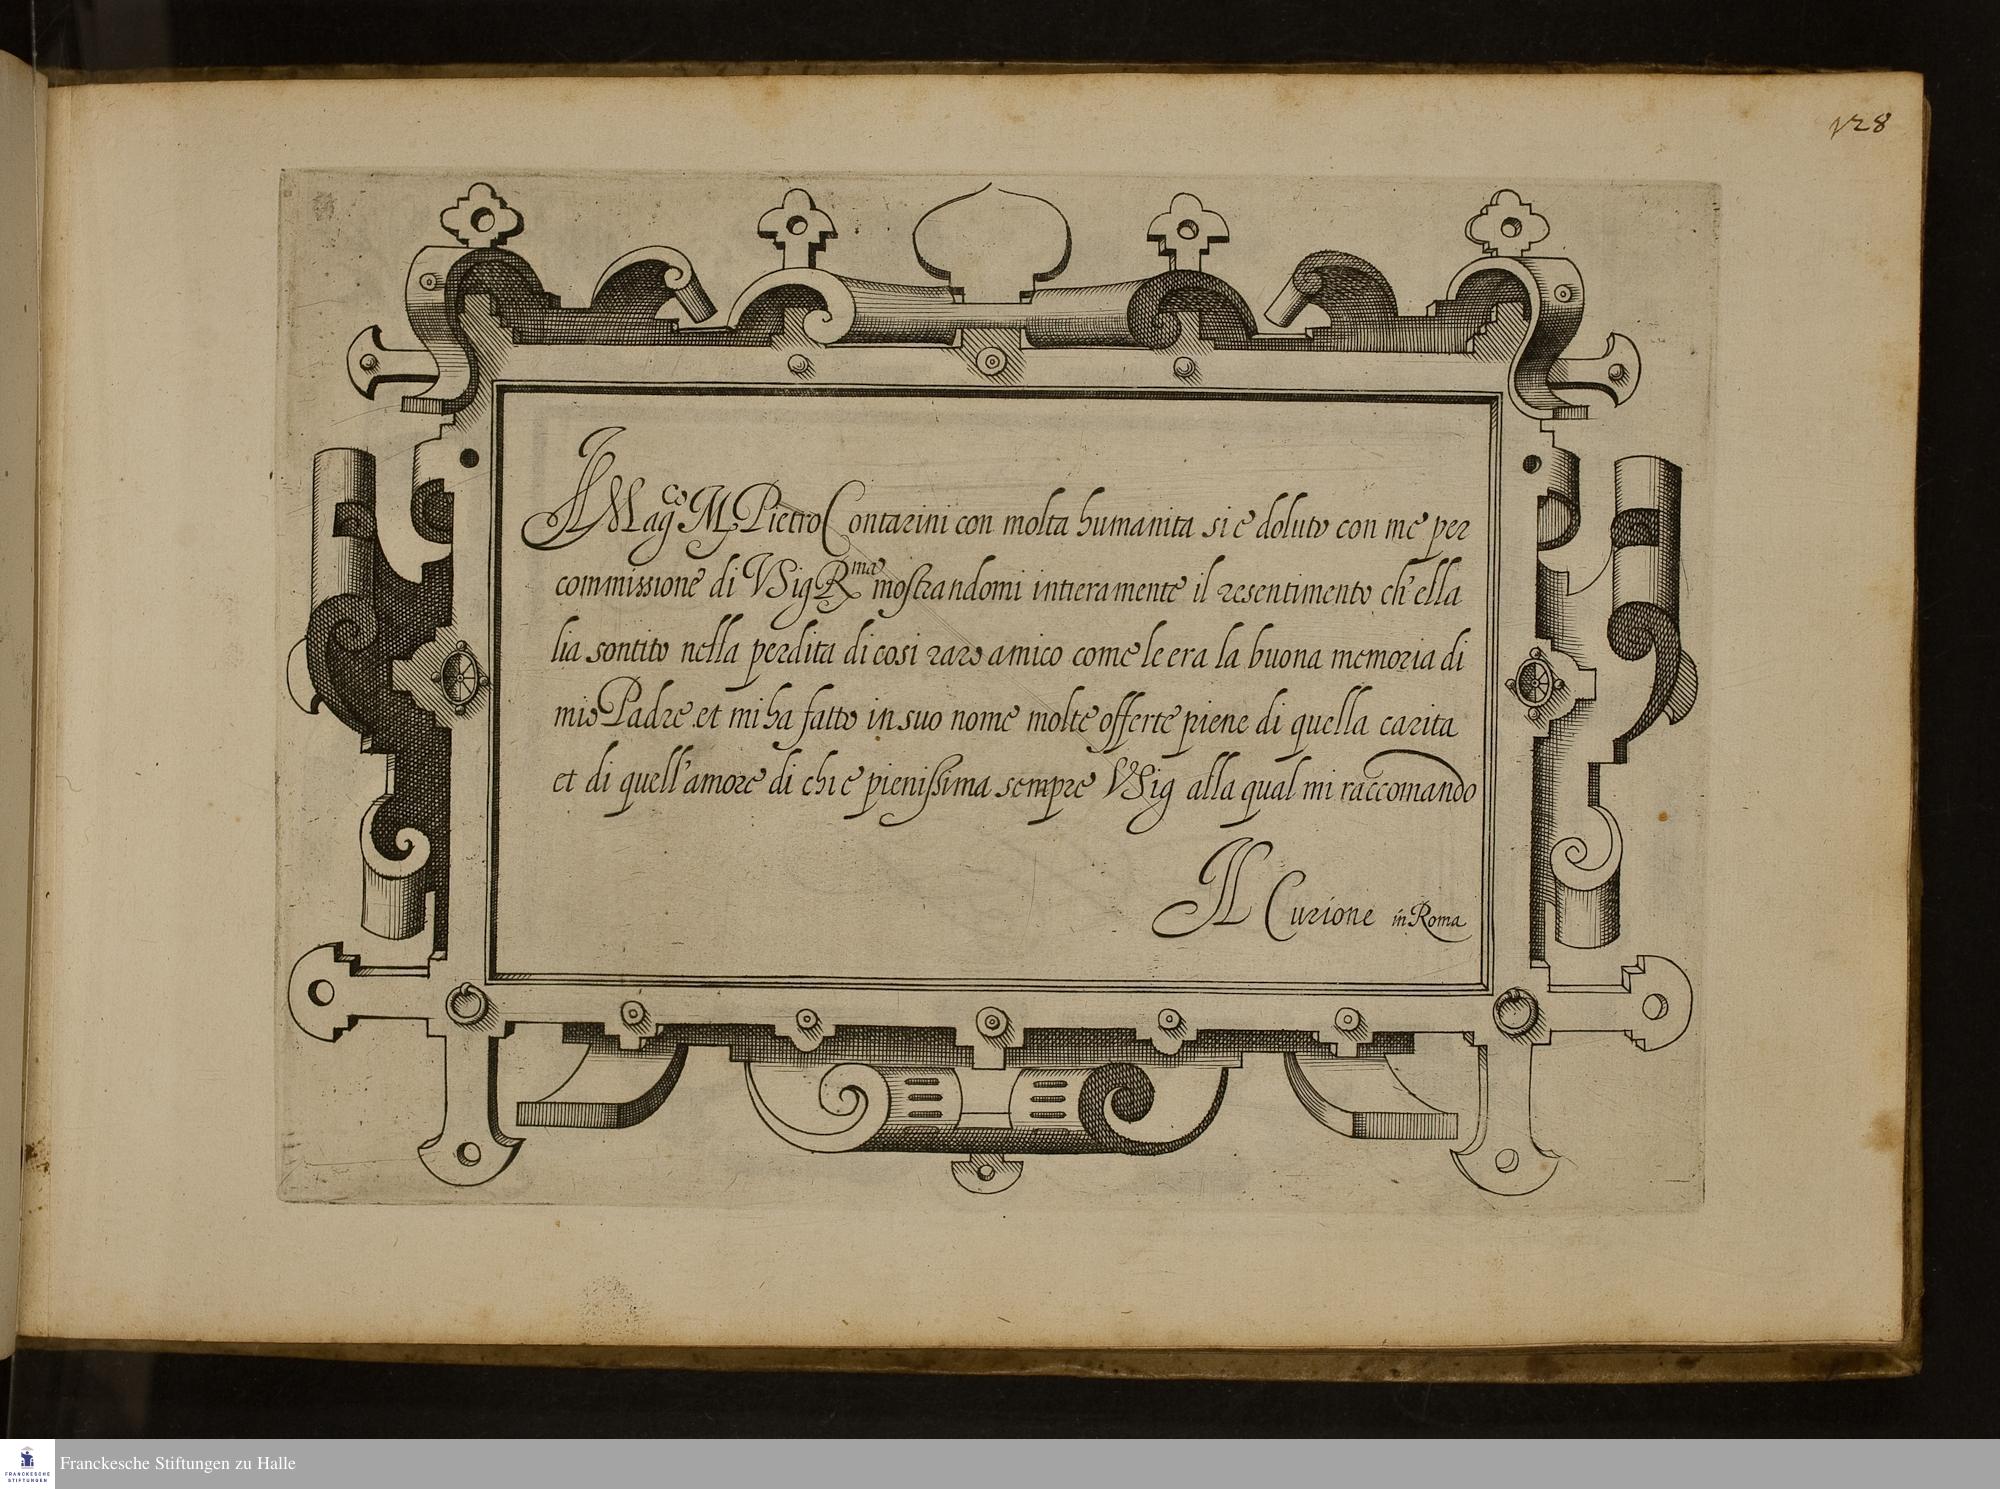 128
Il Mag.co M. Pietro Contarini con molta humanita si e doluto con me per
commissione di VSig Rma mostrandomi intieramente il resentimento ch'ella
ha sentito nella perdita di cosi raro amico come le era la buona memoria di
mio Padre et mi ha fatto in suo nome molte offerte piene di quella carita
et di quell'amore di chi e pienissima sempre VSig alla qual mi raccomando
Il Curione in Roma
Franckesche Stiftungen zu Halle
FRANCKESCHE
STIFTUNGEN